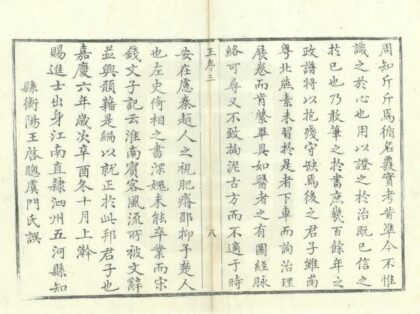 周知斤斤焉循名覈實考昔準今不惟
識之於心也用以證之於治既已信之
於已也乃敢筆之於書庶幾百餘年之
政譜將以抱殘守缺爲後之君子雖南
粤北燕素未習於是者下車而詢治理
展卷而肯綮畢具如醫者之有圖經脉
絡可尋又不致拘泥古方而不適于時
王序三
八
安在慮秦越人之視肥瘠耶抑予楚人
也左史倚相之書深媿未能卒業而宗
錢文子記云淮南賓客風流所被文辭
並興願藉是編以就正於此邦君子也
嘉慶六年歲次辛酉冬十月上澣
賜進士出身江南直隸泗州五河縣知
縣衡陽王啓聰廣門氏譔